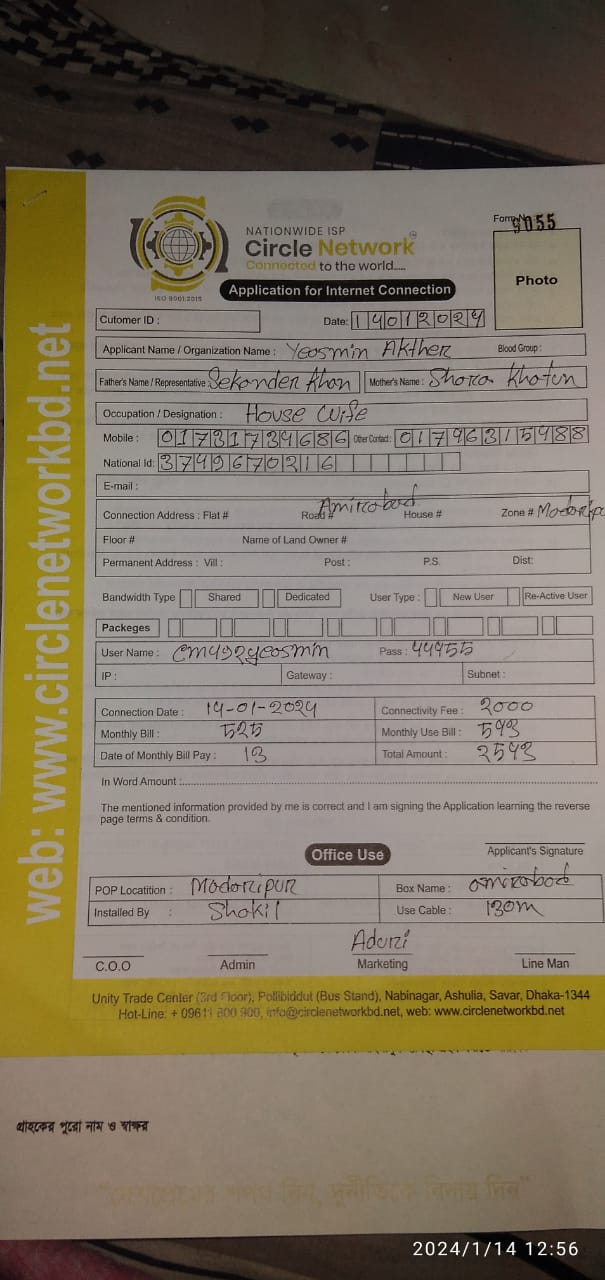 Form No
9055
NATIONWIDE ISP
Circle Network
Connected to the world.....
ISO 9001:2015
Photo
Application for Internet Connection
Cutomer ID :
Date: 14012024
Applicant Name / Organization Name : Yeosmin Akther Blood Group :
Father's Name / Representative : Sekander Khan Mother's Name : Shora Khotun
Occupation / Designation : House Wife
Mobile : 01731734686 Other Contact : 01796315988
National Id: 3749670216
E-mail :
Connection Address : Flat # Road # Amirobad House # Zone # Modorip
Floor # Name of Land Owner #
Permanent Address : Vill : Post : P.S. Dist:
Bandwidth Type Shared Dedicated User Type : New User Re-Active User
Packeges
User Name : Pass : 44455
IP : Gateway : Subnet :
Connection Date : 14-01-2024 Connectivity Fee : 2000
Monthly Bill : 525 Monthly Use Bill : 543
Date of Monthly Bill Pay : 13 Total Amount : 2543
In Word Amount :
The mentioned information provided by me is correct and I am signing the Application learning the reverse
page terms & condition.
Applicant's Signature
Office Use
POP Locatition : Modoripur Box Name : omirobod
Installed By : Shokil Use Cable : 130m
Aduri
C.O.O Admin Marketing Line Man
Unity Trade Center (3rd Floor), Pollibiddut (Bus Stand), Nabinagar, Ashulia, Savar, Dhaka-1344
Hot-Line: + 09611 800 900, info@circlenetworkbd.net, web: www.circlenetworkbd.net
web: www.circlenetworkbd.net
গ্রাহকের পুরো নাম ও স্বাক্ষর
2024/1/14 12:56